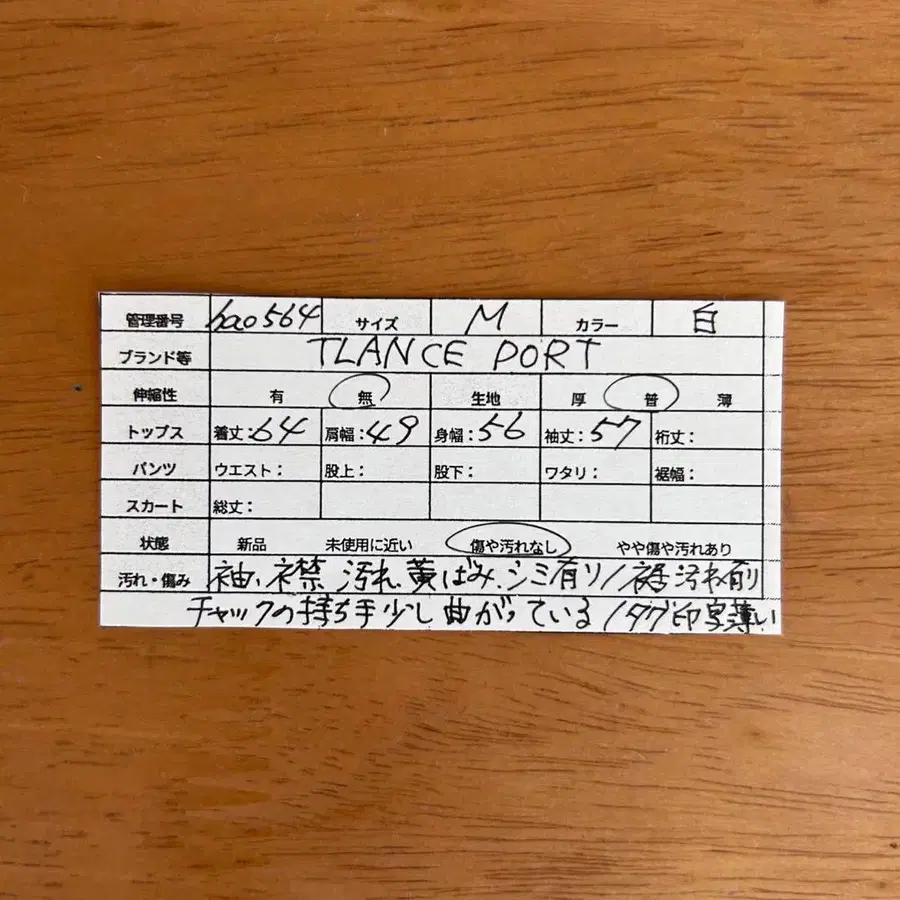 管理番号 hao564 サイズ M カラー 白
ブランド等 TLANCE PORT
伸縮性 有 無 生地 厚 普 薄
トップス 着丈:64 肩幅:49 身幅:56 袖丈:57 裄丈:
パンツ ウエスト: 股上: 股下: ワタリ: 裾幅:
スカート 総丈:
状態 新品 未使用に近い 傷や汚れなし やや傷や汚れあり
汚れ・傷み 袖、襟 汚れ、黄ばみ、シミ有り/裾汚れ有り
チャックの持ち手少し曲がっている/タグ印字薄い